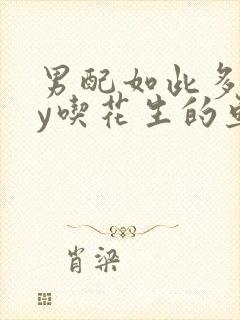 男配如此多
y喫花生的
肖梁